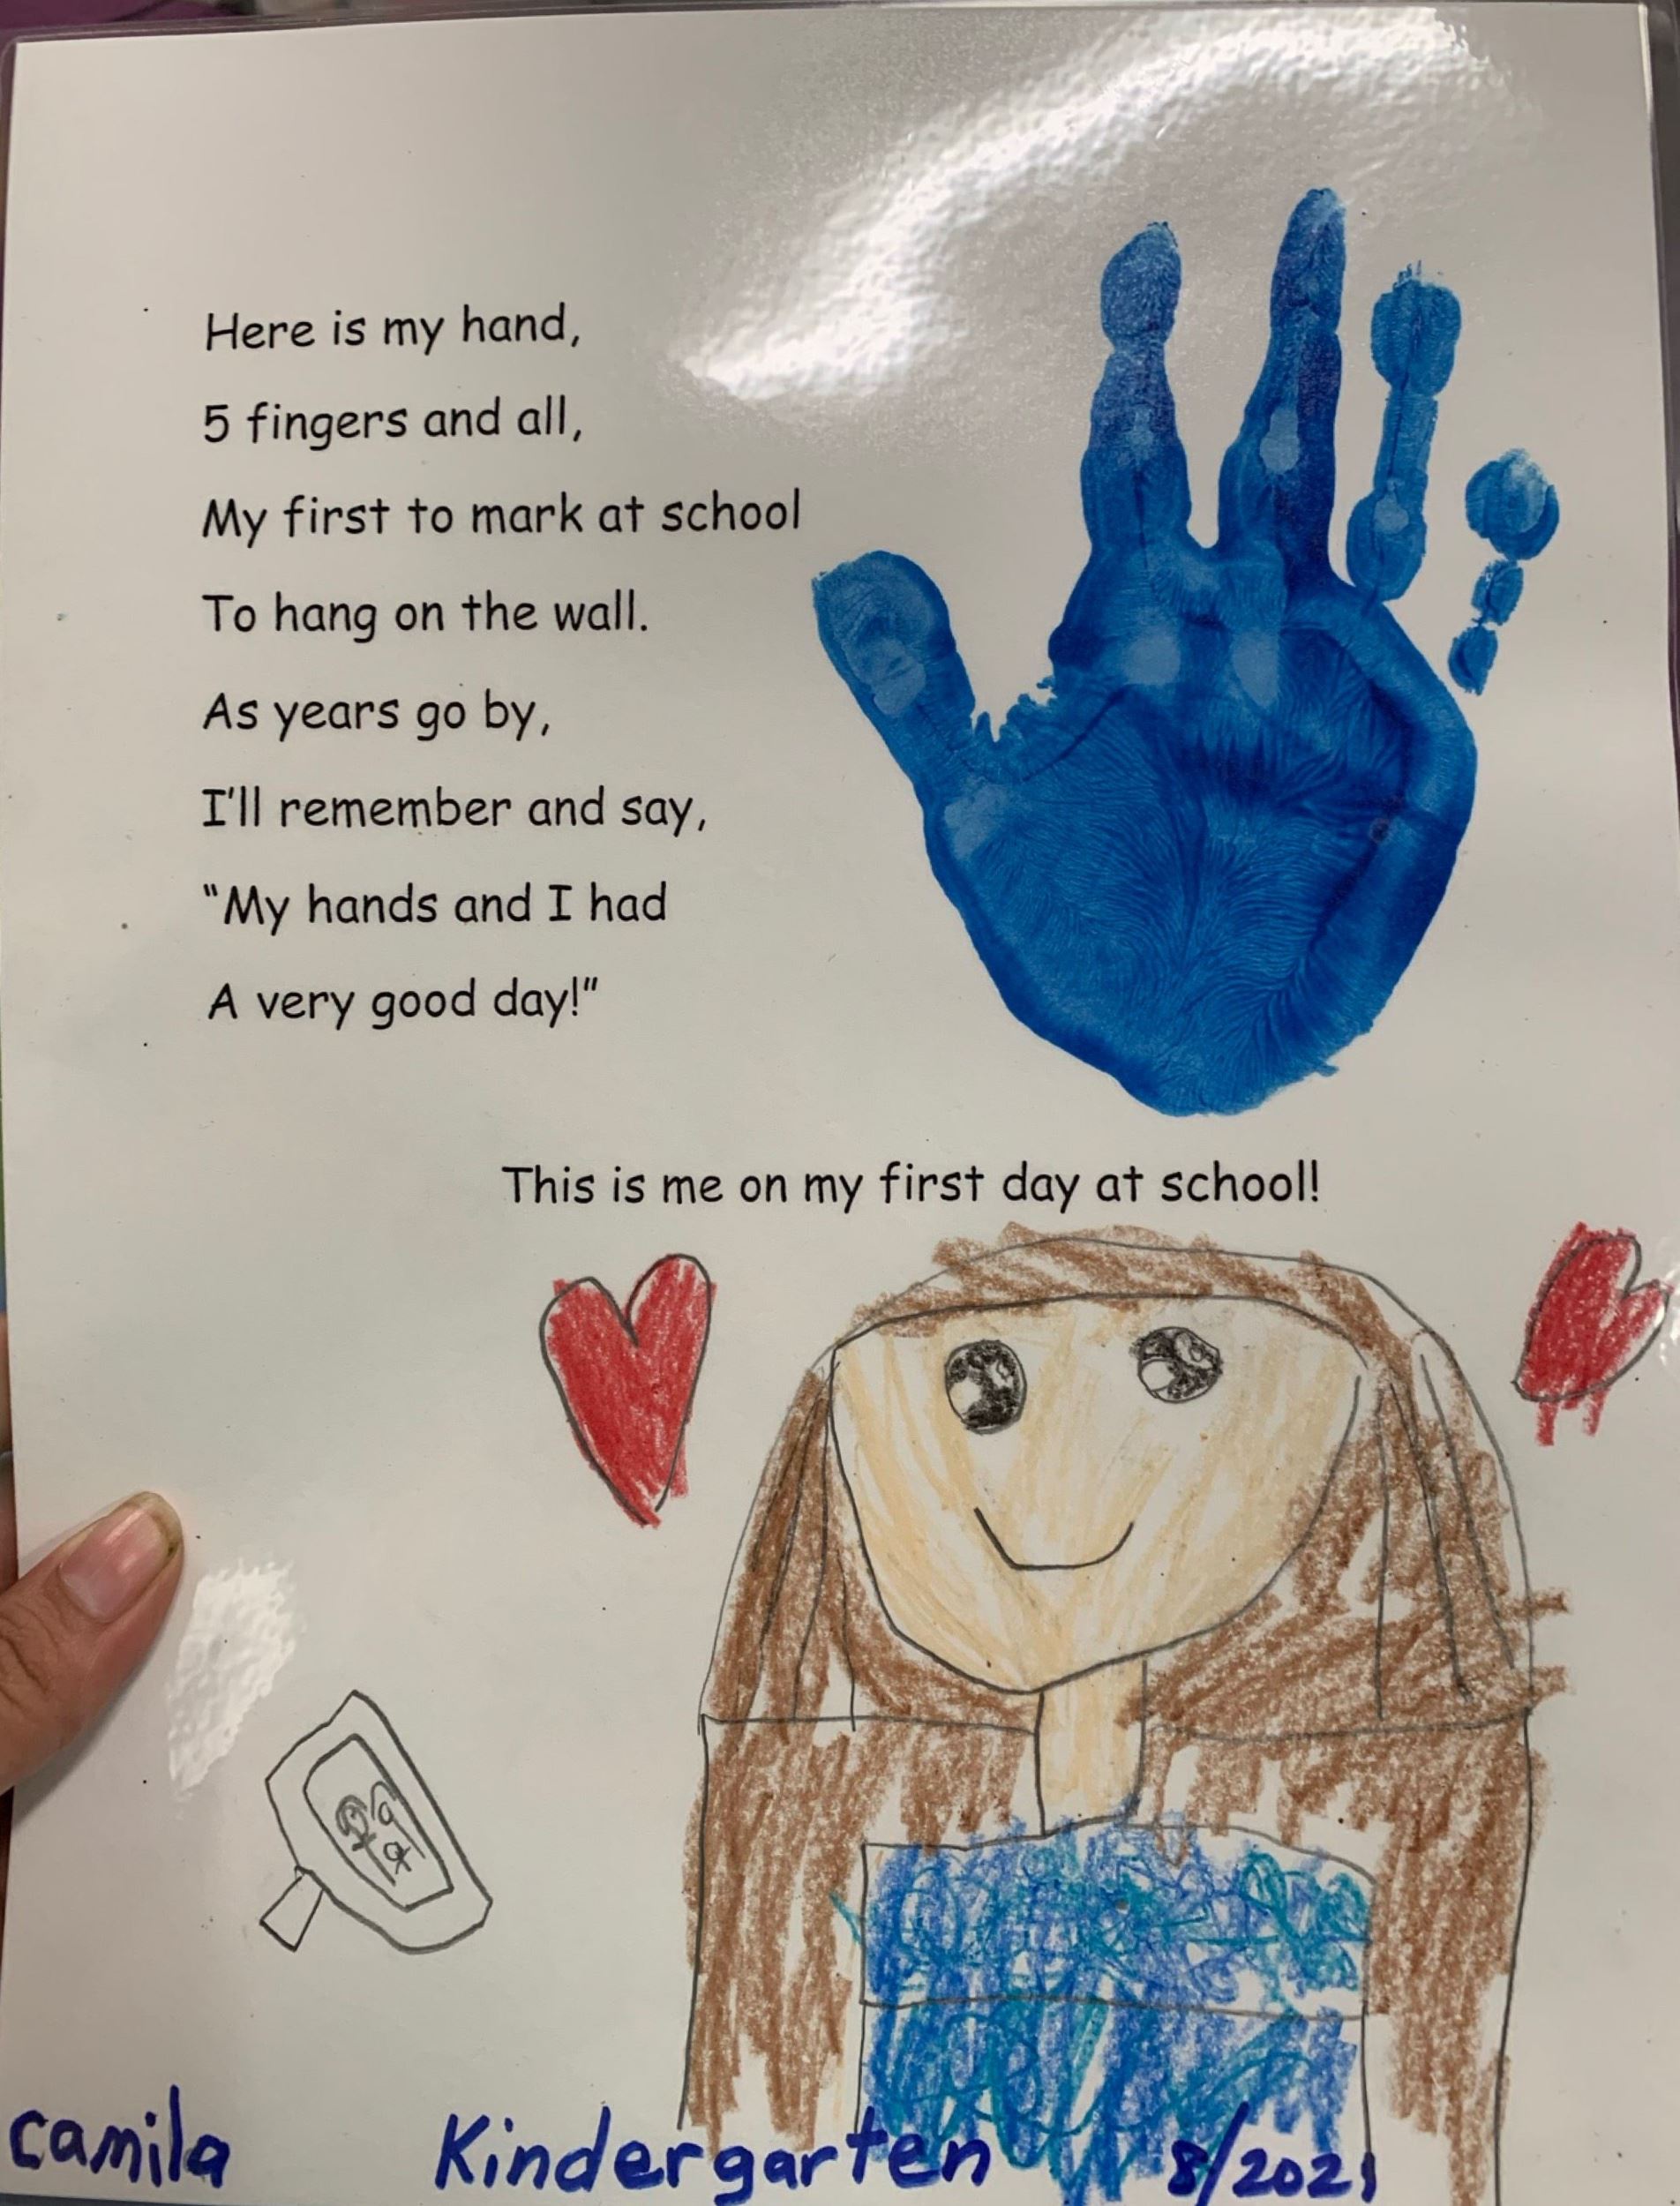 Here is my hand,
5 fingers and all,
My first to mark at school
To hang on the wall.
As years go by,
I'll remember and say,
"My hands and I had
A very good day!"
This is me on my first day at school!
camila Kindergarten 8/2021